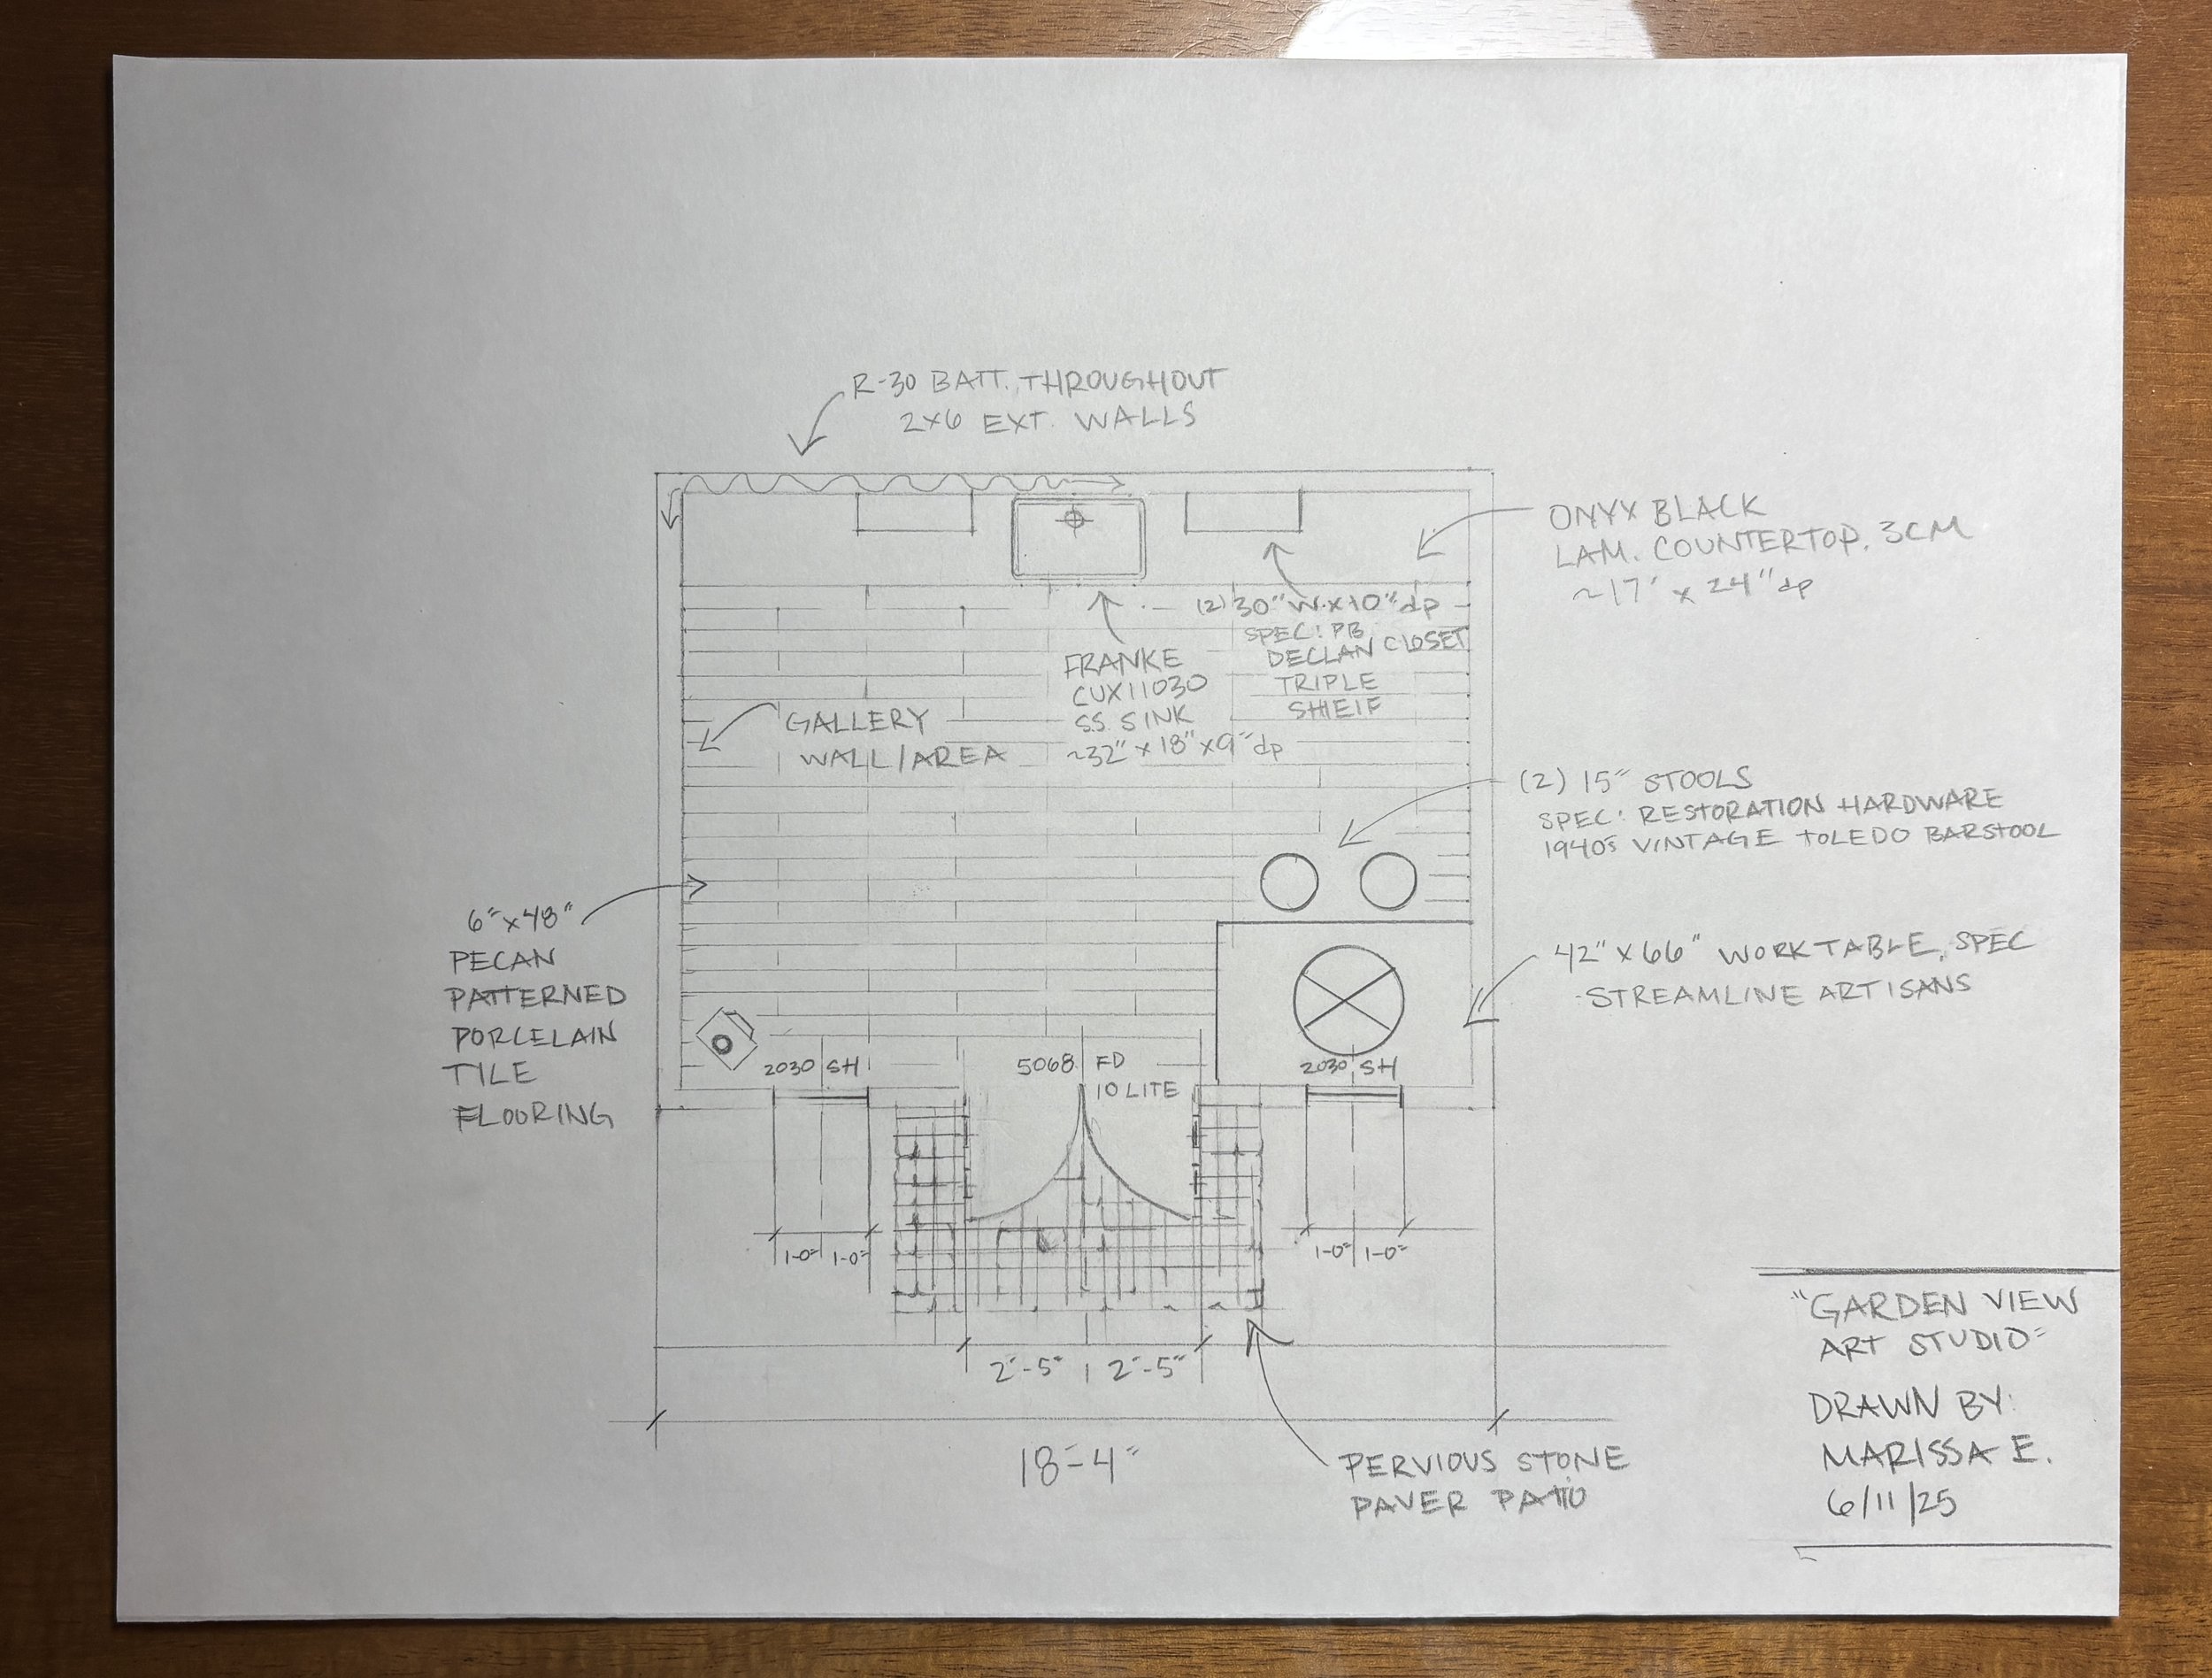 R-30 BATT. THROUGHOUT
2X6 EXT. WALLS
ONYX BLACK
LAM. COUNTERTOP. 3CM
~17' x 24" dp
(2) 30" W. x 10" dp
SPEC: PB
DECLAN CLOSET
TRIPLE
SHELF
FRANKE
CUX11030
S.S. SINK
~32" x 18" x 9" dp
GALLERY
WALL/AREA
(2) 15" STOOLS
SPEC: RESTORATION HARDWARE
1940s VINTAGE TOLEDO BARSTOOL
6" x 48"
PECAN
PATTERNED
PORCELAIN
TILE
FLOORING
42" X 66" WORK TABLE, SPEC
-STREAMLINE ARTISANS
2030 SH
5068 FD
10 LITE
2030 SH
1-0" 1-0"
1-0" 1-0"
2'-5" 2'-5"
18'-4"
PERVIOUS STONE
PAVER PATIO
"GARDEN VIEW
ART STUDIO"
DRAWN BY:
MARISSA E.
6/11/25